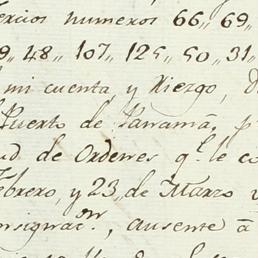 ercios numeros 66,, 69,,
9,, 48,, 107,, 125,, 50,, 31,,
mi cuenta, y Riezgo, D
Puerto de Panamá, p
ud de Ordenes q.e le co
Febrero, y 23,, de Marzo
onsignac.on, ausente á